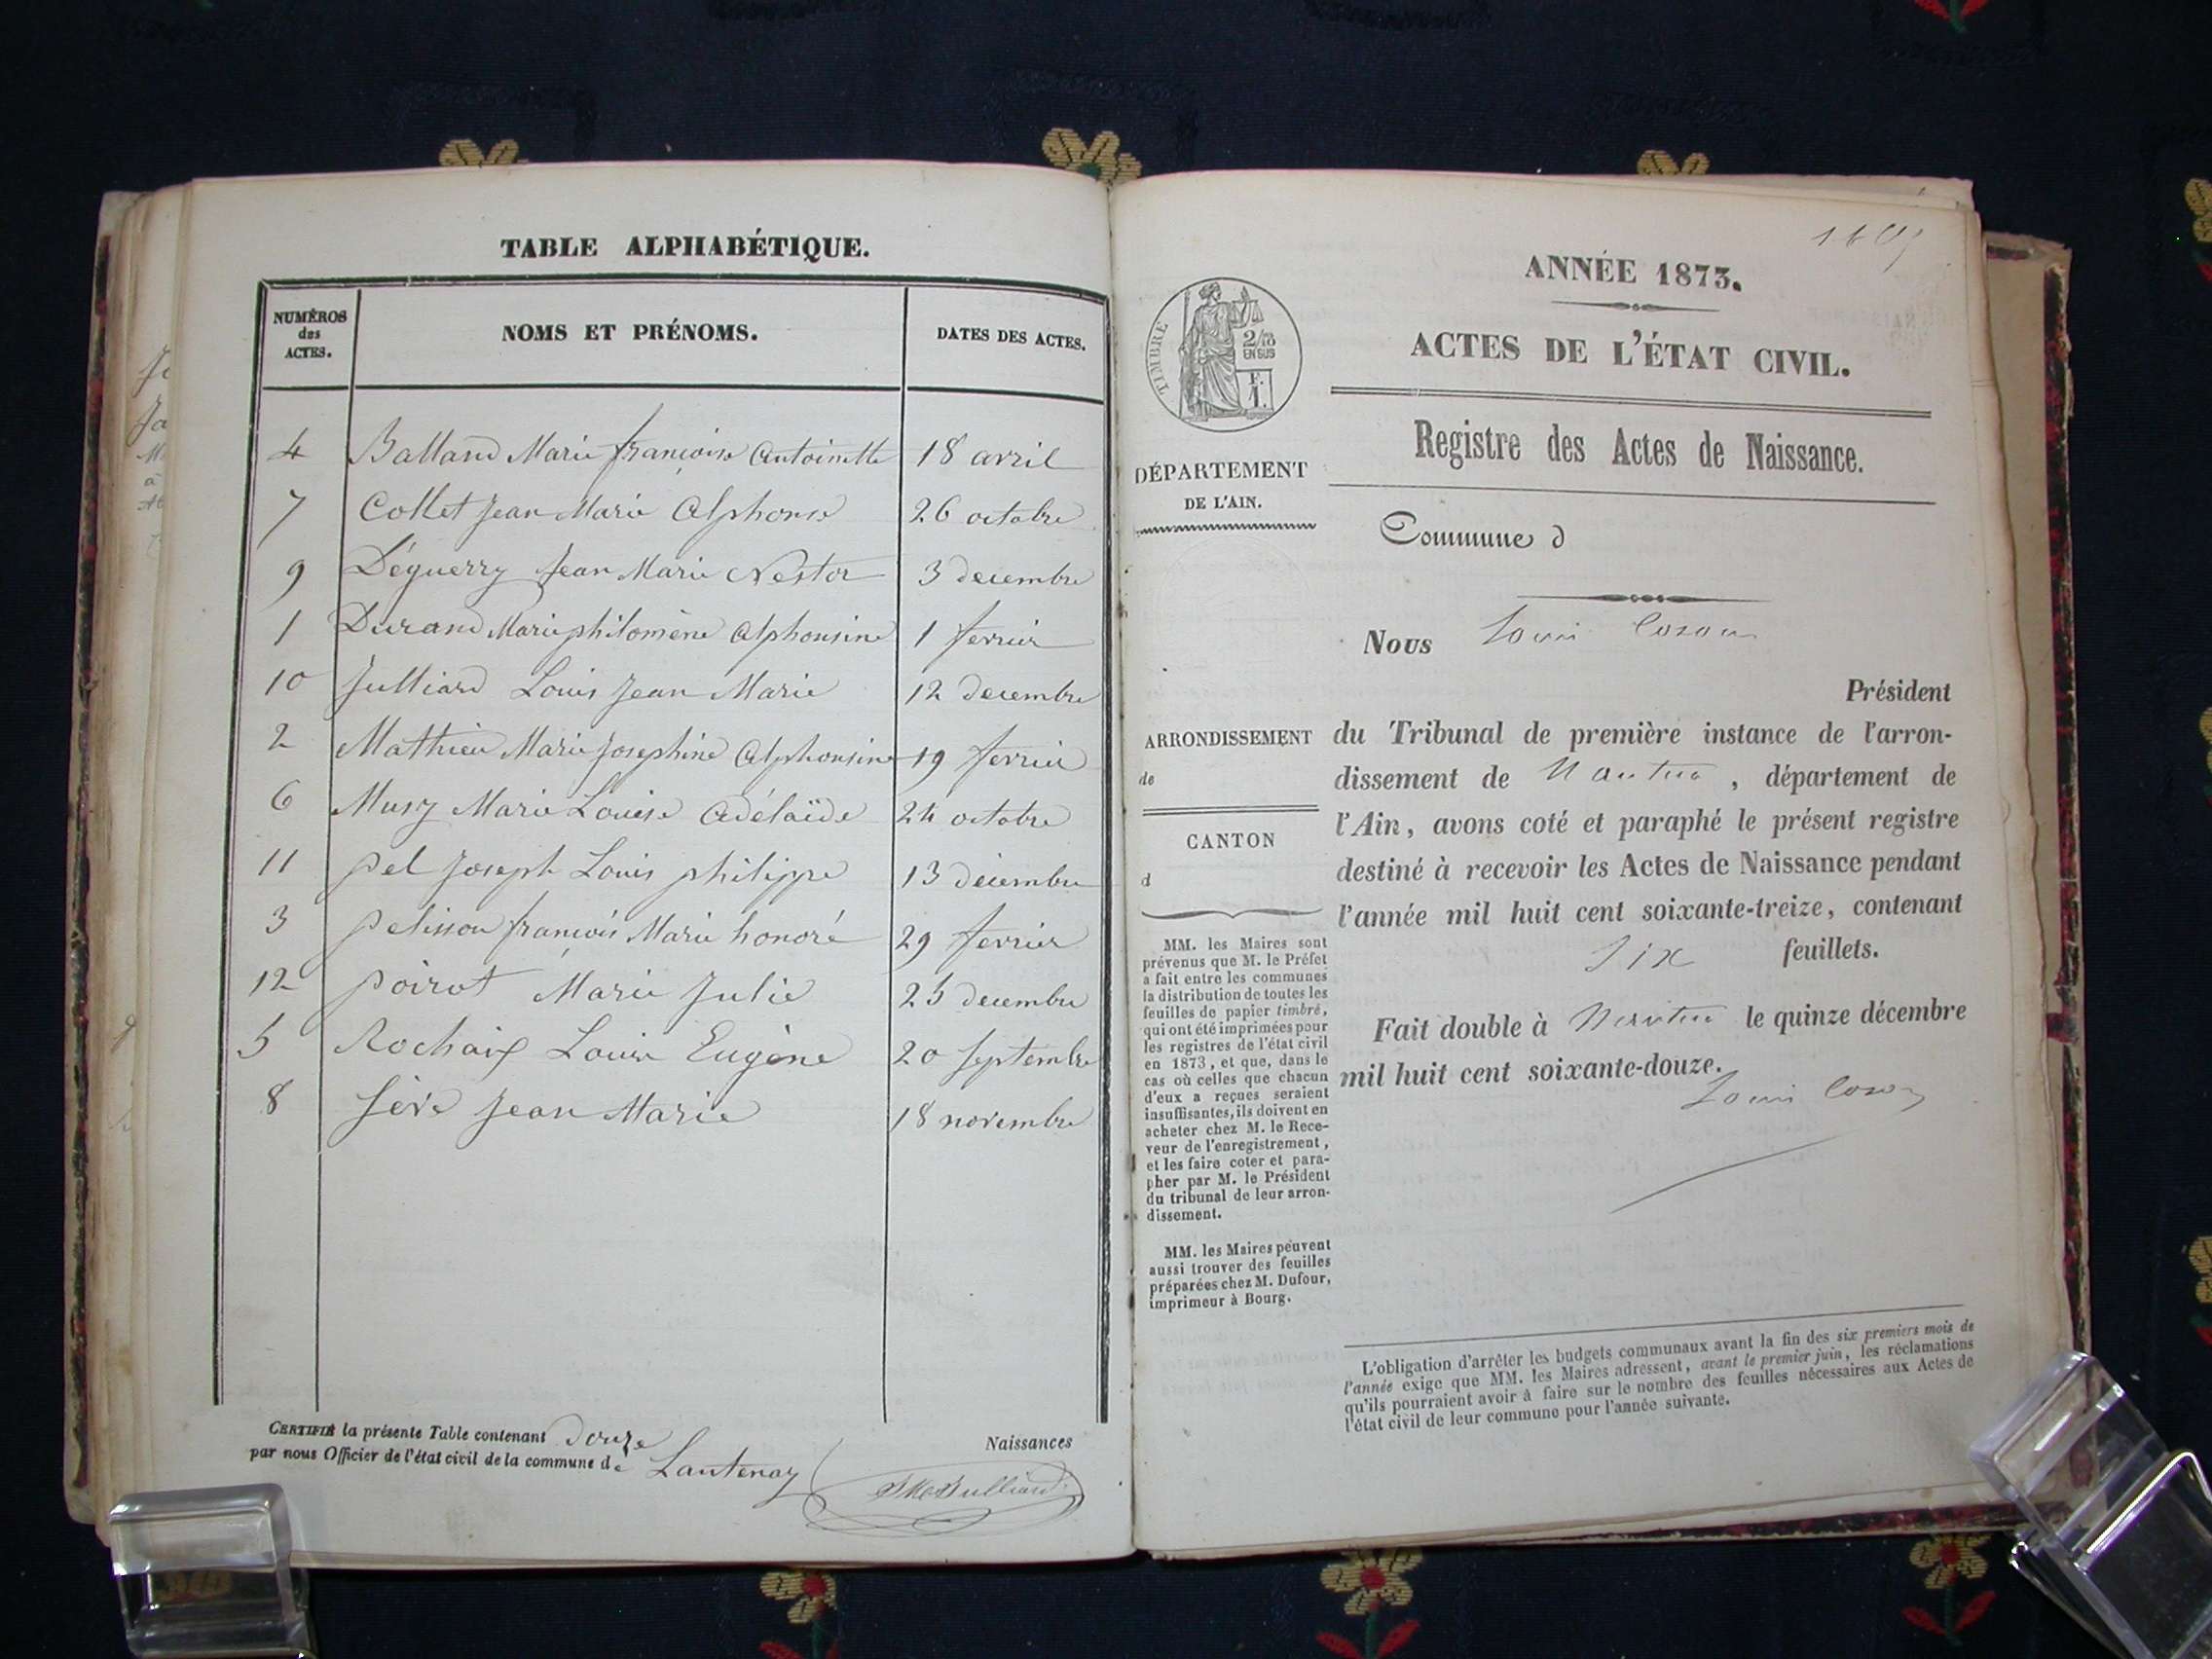 TABLE ALPHABÉTIQUE.
NUMÉROS
des
ACTES.
NOMS ET PRÉNOMS.
DATES DES ACTES.
4 Balland Marie françoise Antoinette 18 avril
7 Collet Jean Marie Alphonse 26 octobre
9 Déguerry Jean Marie Nestor 3 decembre
1 Durand Marie philomène Alphonsine 1 fevrier
10 Julliard Louis Jean Marie 12 decembre
2 Mathieu Marie Josephine Alphonsine 19 fevrier
6 Musy Marie Louise Adélaïde 24 octobre
11 pel Joseph Louis philippe 13 décembre
3 pelisson françois Marie honoré 29 fevrier
12 poirot Marie Julie 25 decembre
5 Rochaix Louis Eugène 20 Septembre
8 Sève Jean Marie 18 novembre
CERTIFIÉ la présente Table contenant douze Naissances
par nous Officier de l'état civil de la commune de Lantenay
ANNÉE 1873.
ACTES DE L'ÉTAT CIVIL.
Registre des Actes de Naissance.
TIMBRE
2/10
EN SUS
F.
1.
DÉPARTEMENT
DE L'AIN.
Commune d
Nous Louis
Président
ARRONDISSEMENT
de
CANTON
d
du Tribunal de première instance de l'arron-
dissement de Nantua, département de
l'Ain, avons coté et paraphé le présent registre
destiné à recevoir les Actes de Naissance pendant
l'année mil huit cent soixante-treize, contenant
six feuillets.
Fait double à Nantua le quinze décembre
mil huit cent soixante-douze.
Louis
MM. les Maires sont
prévenus que M. le Préfet
a fait entre les communes
la distribution de toutes les
feuilles de papier timbré,
qui ont été imprimées pour
les registres de l'état civil
en 1873, et que, dans le
cas où celles que chacun
d'eux a reçues seraient
insuffisantes, ils doivent en
acheter chez M. le Rece-
veur de l'enregistrement,
et les faire coter et para-
pher par M. le Président
du tribunal de leur arron-
dissement.
MM. les Maires peuvent
aussi trouver des feuilles
préparées chez M. Dufour,
imprimeur à Bourg.
L'obligation d'arrêter les budgets communaux avant la fin des six premiers mois de
l'année exige que MM. les Maires adressent, avant le premier juin, les réclamations
qu'ils pourraient avoir à faire sur le nombre des feuilles nécessaires aux Actes de
l'état civil de leur commune pour l'année suivante.